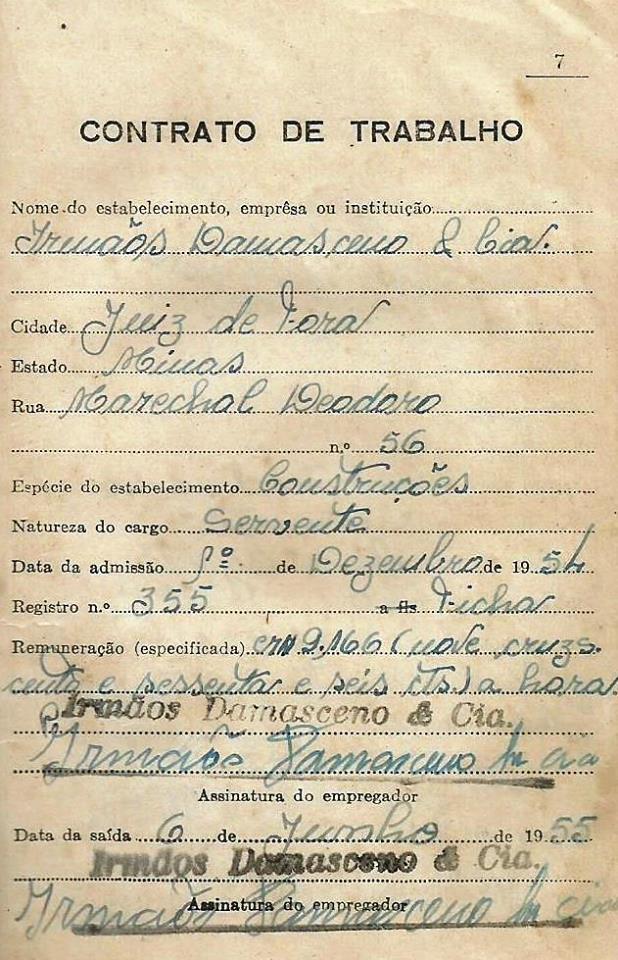 7
CONTRATO DE TRABALHO
Nome do estabelecimento, emprêsa ou instituição
Irmãos Damasceno & Cia.
Cidade Juiz de Fora
Estado Minas
Rua Marechal Deodoro
n.º 56
Espécie do estabelecimento Construções
Natureza do cargo Servente
Data da admissão 1º de Dezembro de 1954
Registro n.º 355 a fls Ficha
Remuneração (especificada) cr$ 9,166 (nove cruzs.
cento e sessenta e seis cts) a hora.
Irmãos Damasceno & Cia.
Irmãos Damasceno cia
Assinatura do empregador
Data da saída 6 de Junho de 1955
Irmãos Damasceno & Cia.
Irmãos Damasceno cia
Assinatura do empregador